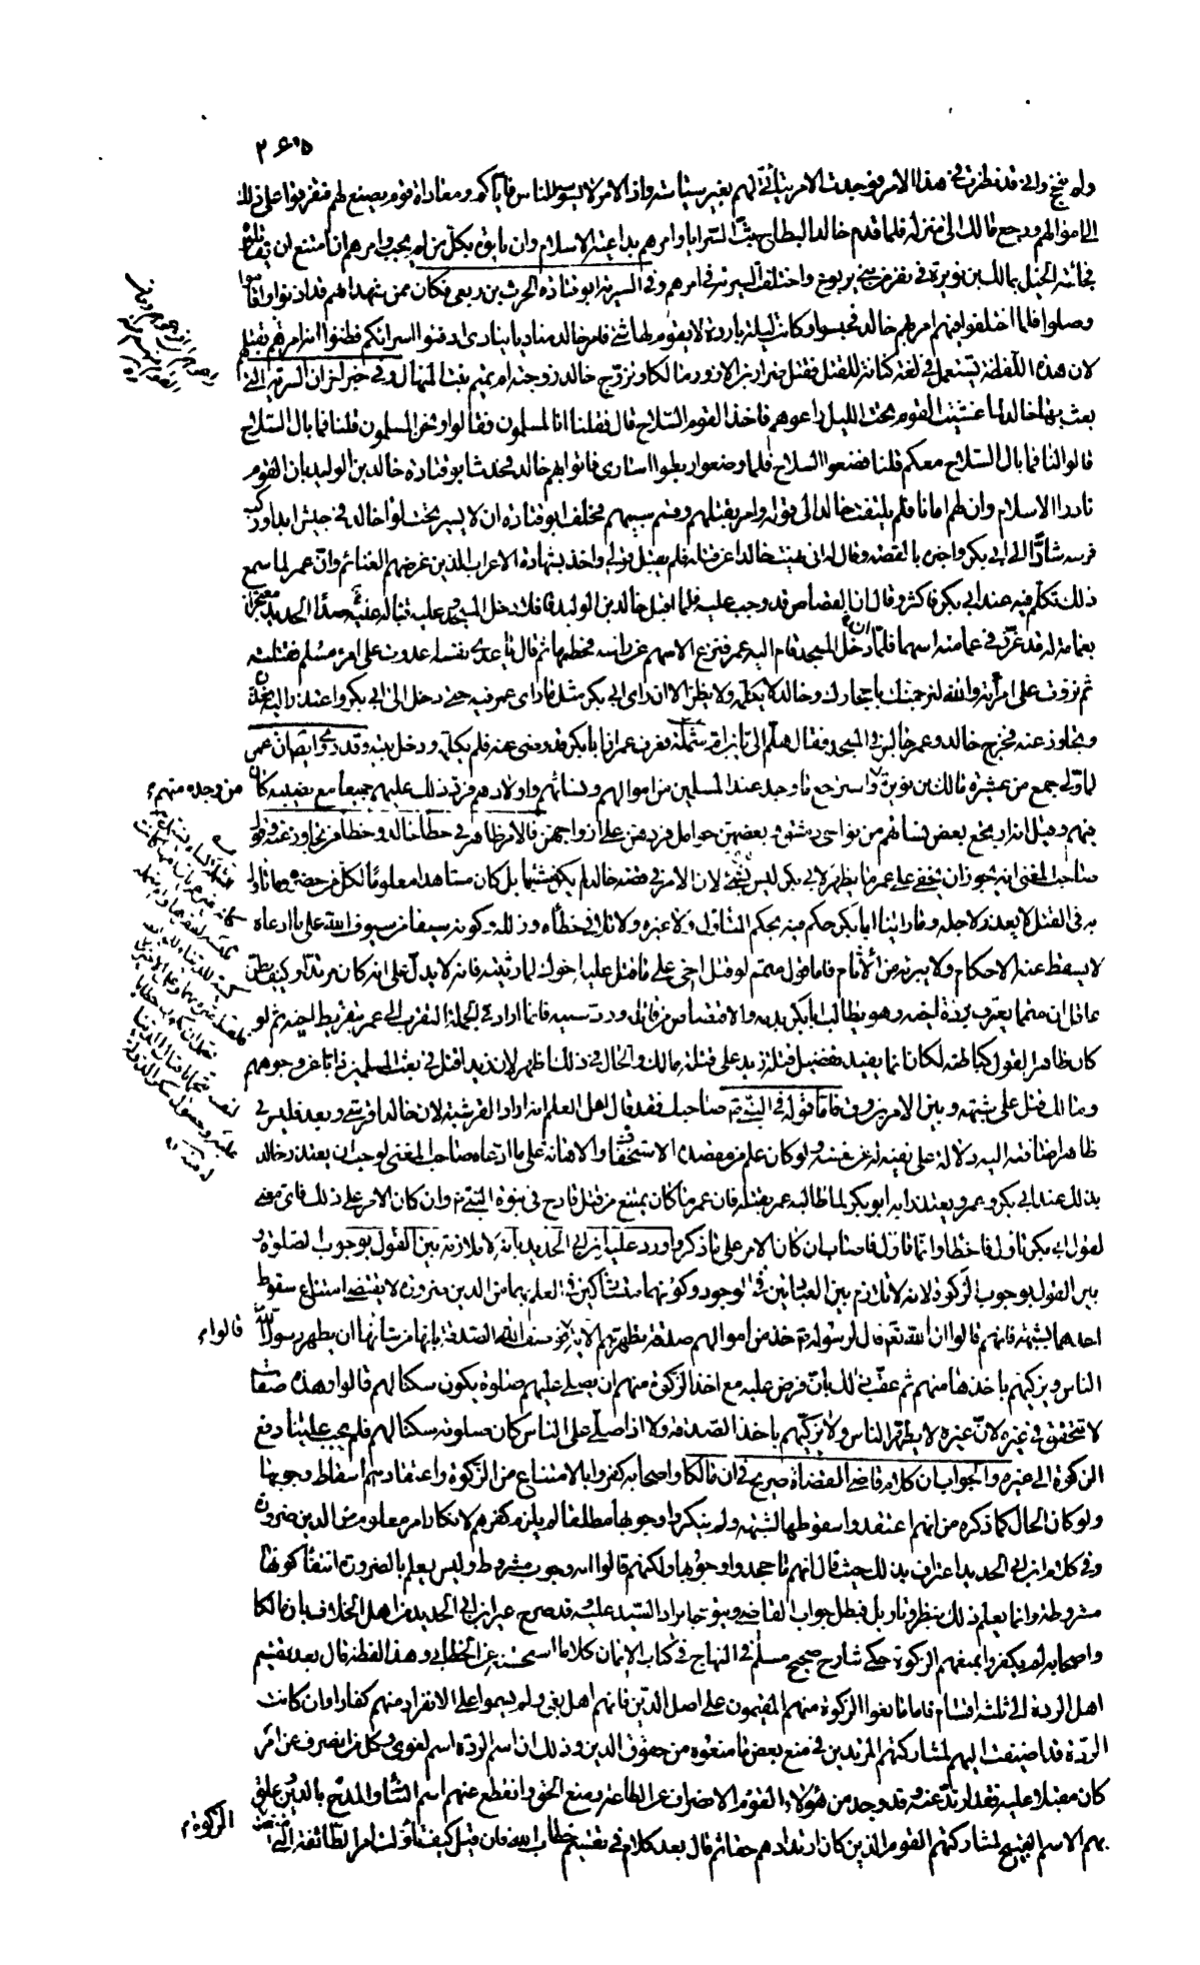 ٢٦٥
وله نجح واني قد نظرت في هذا الامر فوجدت الامر يتأتى لهم بغير سياسة واذا الامر لا يسوسه الناس فاياكم ومعاداة قوم يصنع لهم فتفرقوا على ذلك
الى اموالهم ورجع مالك الى منزله فلما قدم خالد البطاح بث السرايا وامرهم بداعية الاسلام وان ياتوه بكل من لم يجب وامرهم ان امتنع ان يقتلوه
فجائته الخيل بمالك بن نويرة في نفر من بني يربوع واختلفت السرية في امرهم وفي السرية ابو قتادة الحرث بن ربعي فكان ممن شهد انهم قد اذنوا واقاموا
وصلوا فلما اختلفوا فيهم امر بهم خالد فحبسوا وكانت ليلة باردة لا يقوم لها شئ فامر خالد مناديا ينادي ادفئوا اسرائكم فظنوا انه امر بقتلهم
لان هذه اللفظة تستعمل في لغة كنانة للقتل فقتل ضرار بن الازور مالكا وتزوج خالد زوجته ام تميم بنت المنهال وفي خبر اخر ان السرية التي
بعث بها خالد لما غشيت القوم تحت الليل راعوهم فاخذ القوم السلاح قال فقلنا انا لمسلمون فقالوا ونحن المسلمون قلنا فما بال السلاح
قالوا لنا فما بال السلاح معكم قلنا فضعوا السلاح فلما وضعوا ربطوا اسارى فاتوا بهم خالد فحدث ابو قتادة خالد بن الوليد بان القوم
نادوا الاسلام وان لهم امانا فلم يلتفت خالد الى قوله وامر بقتلهم وقسم سبيهم فحلف ابو قتادة ان لا يسير تحت لواء خالد في جيش ابدا وركب
فرسه شاذا الى ابي بكر واخبره بالقصة وقال له اني نهيت خالدا عن قتله فلم يقبل قولي واخذ بشهادة الاعراب الذين غرضهم الغنائم وان عمر لما سمع
ذلك تكلم فيه عند ابي بكر فاكثر وقال ان القصاص قد وجب عليه فلما اقبل خالد بن الوليد قافلا دخل المسجد وعليه قباء له عليه صدأ الحديد معتجرا
بعمامة له قد غرز في عمامته اسهما فلما ان دخل المسجد قام اليه عمر فنزع الاسهم عن راسه فحطمها ثم قال يا عدي نفسه اعدوت على امرئ مسلم فقتلته
ثم نزوت على امرأته والله لنرجمنك باحجارك وخالد لا يكلمه ولا يظن الا ان راى ابي بكر مثل ما راى عمر فيه حتى دخل الى ابي بكر واعتذر اليه فعذره
وتجاوز عنه فخرج خالد وعمر جالس في المسجد فقال هلم الي يا بن ام شملة فعرف عمر ان ابا بكر قد رضي عنه فلم يكلمه ودخل بيته وقد روي ايضا ان عمر
لما ولي جمع من عشيرة مالك بن نويرة واسترجع ما وجد عند المسلمين من اموالهم ونسائهم واولادهم فرد ذلك عليهم جميعا مع نصيبه كان
منهم وقيل انه ارتجع بعض نسائهم من نواحي دمشق وبعضهن حوامل فردهن على ازواجهن فالامر ظاهر في خطأ خالد وخطأ من تجاوز عنه وقول
صاحب المغني انه يجوز ان يخفى على عمر ما يظهر لابي بكر ليس بشئ لان الامر في قصة خالد لم يكن مشتبها بل كان مشاهدا معلوما لكل من حضره وما تاول
به في القتل لا يعذر لاجله وما راينا ابا بكر حكم فيه بحكم المتاول ولا غيره ولا تلافى خطأه وزلله وكونه سيفا من سيوف الله على ما ادعاه
لا يسقط عنه الاحكام ولا يبرئه من الأثام فاما قول متمم لو قتل اخي على ما قتل عليه اخوك لما رثيته فانه لا يدل على انه كان مرتدا وكيف يظن
عاقل ان متمما يعترف بردة اخيه وهو يطالب ابا بكر بدمه والاقتصاص من قاتليه ورد سبيه فانما اراد في الجملة التقرب الى عمر بتقريظ اخيه ثم لو
كان ظاهر القول كباطنه لكان انما يفيد تفضيل قتلة زيد على قتلة مالك والحال في ذلك اظهر لان زيدا قتل في بعث المسلمين ذابا عن وجوههم
ومالك قتل على شبهة وبين الامرين فرق فاما قوله في النبي ص صاحبك فقد قال اهل العلم انه اراد القرشية لان خالدا قرشي وبعد فليس في
ظاهر اضافته اليه دلالة على نفيه له عن نفسه ولو كان علم من قصده الاستخفاف والاهانة على ما ادعاه صاحب المغني لوجب ان يعتذر خالد
بذلك عند ابي بكر وعمر ويعتذر به ابو بكر لما طالبه عمر بقتله فان عمر ما كان يمتنع من قتل قادح في نبوة النبي ص وان كان الامر على ذلك فاي معنى
لقول ابي بكر تاول فاخطا وانما تاول فاصاب ان كان الامر على ما ذكر واورد عليه ابن ابي الحديد بانه لا ملازمة بين القول بوجوب الصلوة و
بين القول بوجوب الزكوة لانه لا تلازم بين العبادتين في الوجود وكونهما متشاركين في العلم بهما من الدين ضرورة لا يقتضي امتناع سقوط
احدهما بشبهة فانهم قالوا ان الله تعالى قال لرسوله ص خذ من اموالهم صدقة تطهرهم الاية فوصف الله الصدقة بانها من شانها ان يطهر رسول الله
الناس ويزكيهم باخذها منهم ثم عقب ذلك بان فرض عليه مع اخذ الزكوة منهم ان يصلي عليهم صلوة يكون سكنا لهم قالوا وهذه صفات
لا تتحقق في غيره لان غيره لا يطهر الناس ولا يزكيهم باخذ الصدقة ولا اذا صلى على الناس كان صلوته سكنا لهم فلم يجب علينا دفع
الزكوة الى غيره والجواب ان كلام قاضي القضاة صريح في ان مالكا واصحابه كفروا بالامتناع من الزكوة واعتقادهم اسقاط وجوبها
ولو كان الحال كما ذكره من انهم اعتقدوا سقوطها لشبهة ولم ينكروا وجوبها مطلقا لم يلزم كفرهم لانكار امر معلوم من الدين ضرورة
وفي كلام ابن ابي الحديد اعتراف بذلك حيث قال انهم ما جحدوا وجوبها ولكنهم قالوا انه وجوب مشروط وليس يعلم بالضرورة انتفاء كونها
مشروطة وانما يعلم ذلك بنظر وتاويل فبطل جواب القاضي ويتوجه ايراد السيد عليه وقد صرح غير ابن ابي الحديد من اهل الخلاف بان مالكا
واصحابه لم يكفروا بمنعهم الزكوة حكى شارح صحيح مسلم في المنهاج في كتاب الايمان كلاما استحسنه عن الخطابي وهذا لفظه قال بعد تقسيم
اهل الردة الى ثلثة اقسام فاما مانعوا الزكوة منهم المقيمون على اصل الدين فانهم اهل بغي ولم يسموا على الانفراد منهم كفارا وان كانت
الردة قد اضيفت اليهم لمشاركتهم المرتدين في منع بعض ما منعوه من حقوق الدين وذلك ان اسم الردة اسم لغوي وكل من انصرف عن امر
كان مقبلا عليه فقد ارتد عنه وقد وجد من هؤلاء القوم الانصراف عن الطاعة ومنع الحق وانقطع عنهم اسم الثناء والمدح بالدين وعلق
بهم الاسم القبيح لمشاركتهم القوم الذين كان ارتدادهم حقا ثم قال بعد كلام في تقسيم خطاب الله فان قيل كيف تأولت امر الطائفة التي منعت
من وجده منهم
قالوا
الزكوة